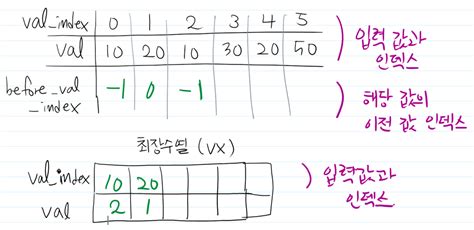 val_index 0 1 2 3 4 5
val 10 20 10 30 20 50
) 입력 값과
인덱스
before_val
_index -1 0 -1
) 해당 값의
이전 값 인덱스
최장수열 (VX)
val_index 10 20
val 2 1
) 입력값과
인덱스